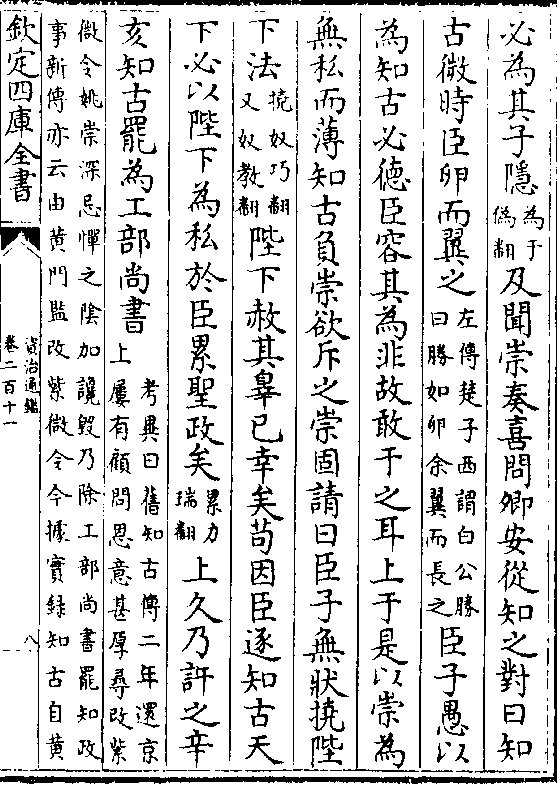 必為其子隱為于偽翻及聞崇奏喜問卿安從知之對曰知
古微時臣卵而翼之左傳楚子西謂白公勝曰勝如卵余翼而長之臣子愚以
為知古必德臣容其為非故敢干之耳上于是以崇為
無私而薄知古負崇欲斥之崇固請曰臣子無狀撓陛
下法撓奴巧翻又奴教翻陛下赦其辠已幸矣苟因臣逐知古天
下必以陛下為私於臣累聖政矣累力瑞翻上久乃許之辛
亥知古罷為工部尚書考異曰舊知古傳二年還京上屢有顧問恩意甚厚尋改紫
微令姚崇深忌憚之陰加讒毀乃除工部尚書罷知政
事新傳亦云由黄門監改紫微令今據實録知古自黄
欽定四庫全書
資治通鑑
卷二百十一
八